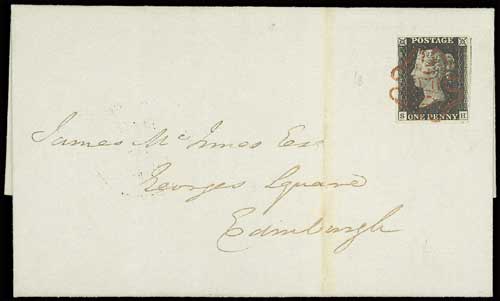 POSTAGE
S ONE PENNY H
James McInnes Esq
Georges Square
Edinburgh